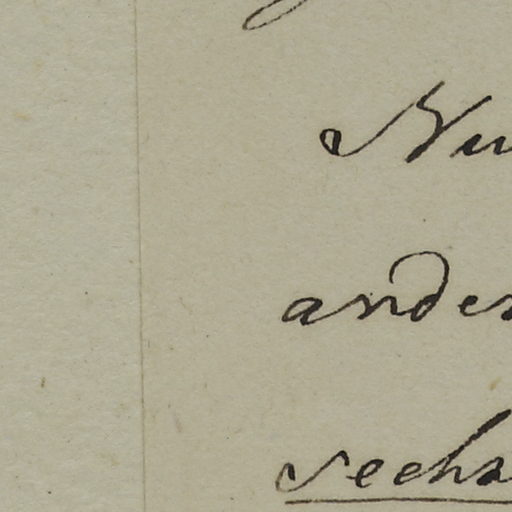 Nu
ander
sechs